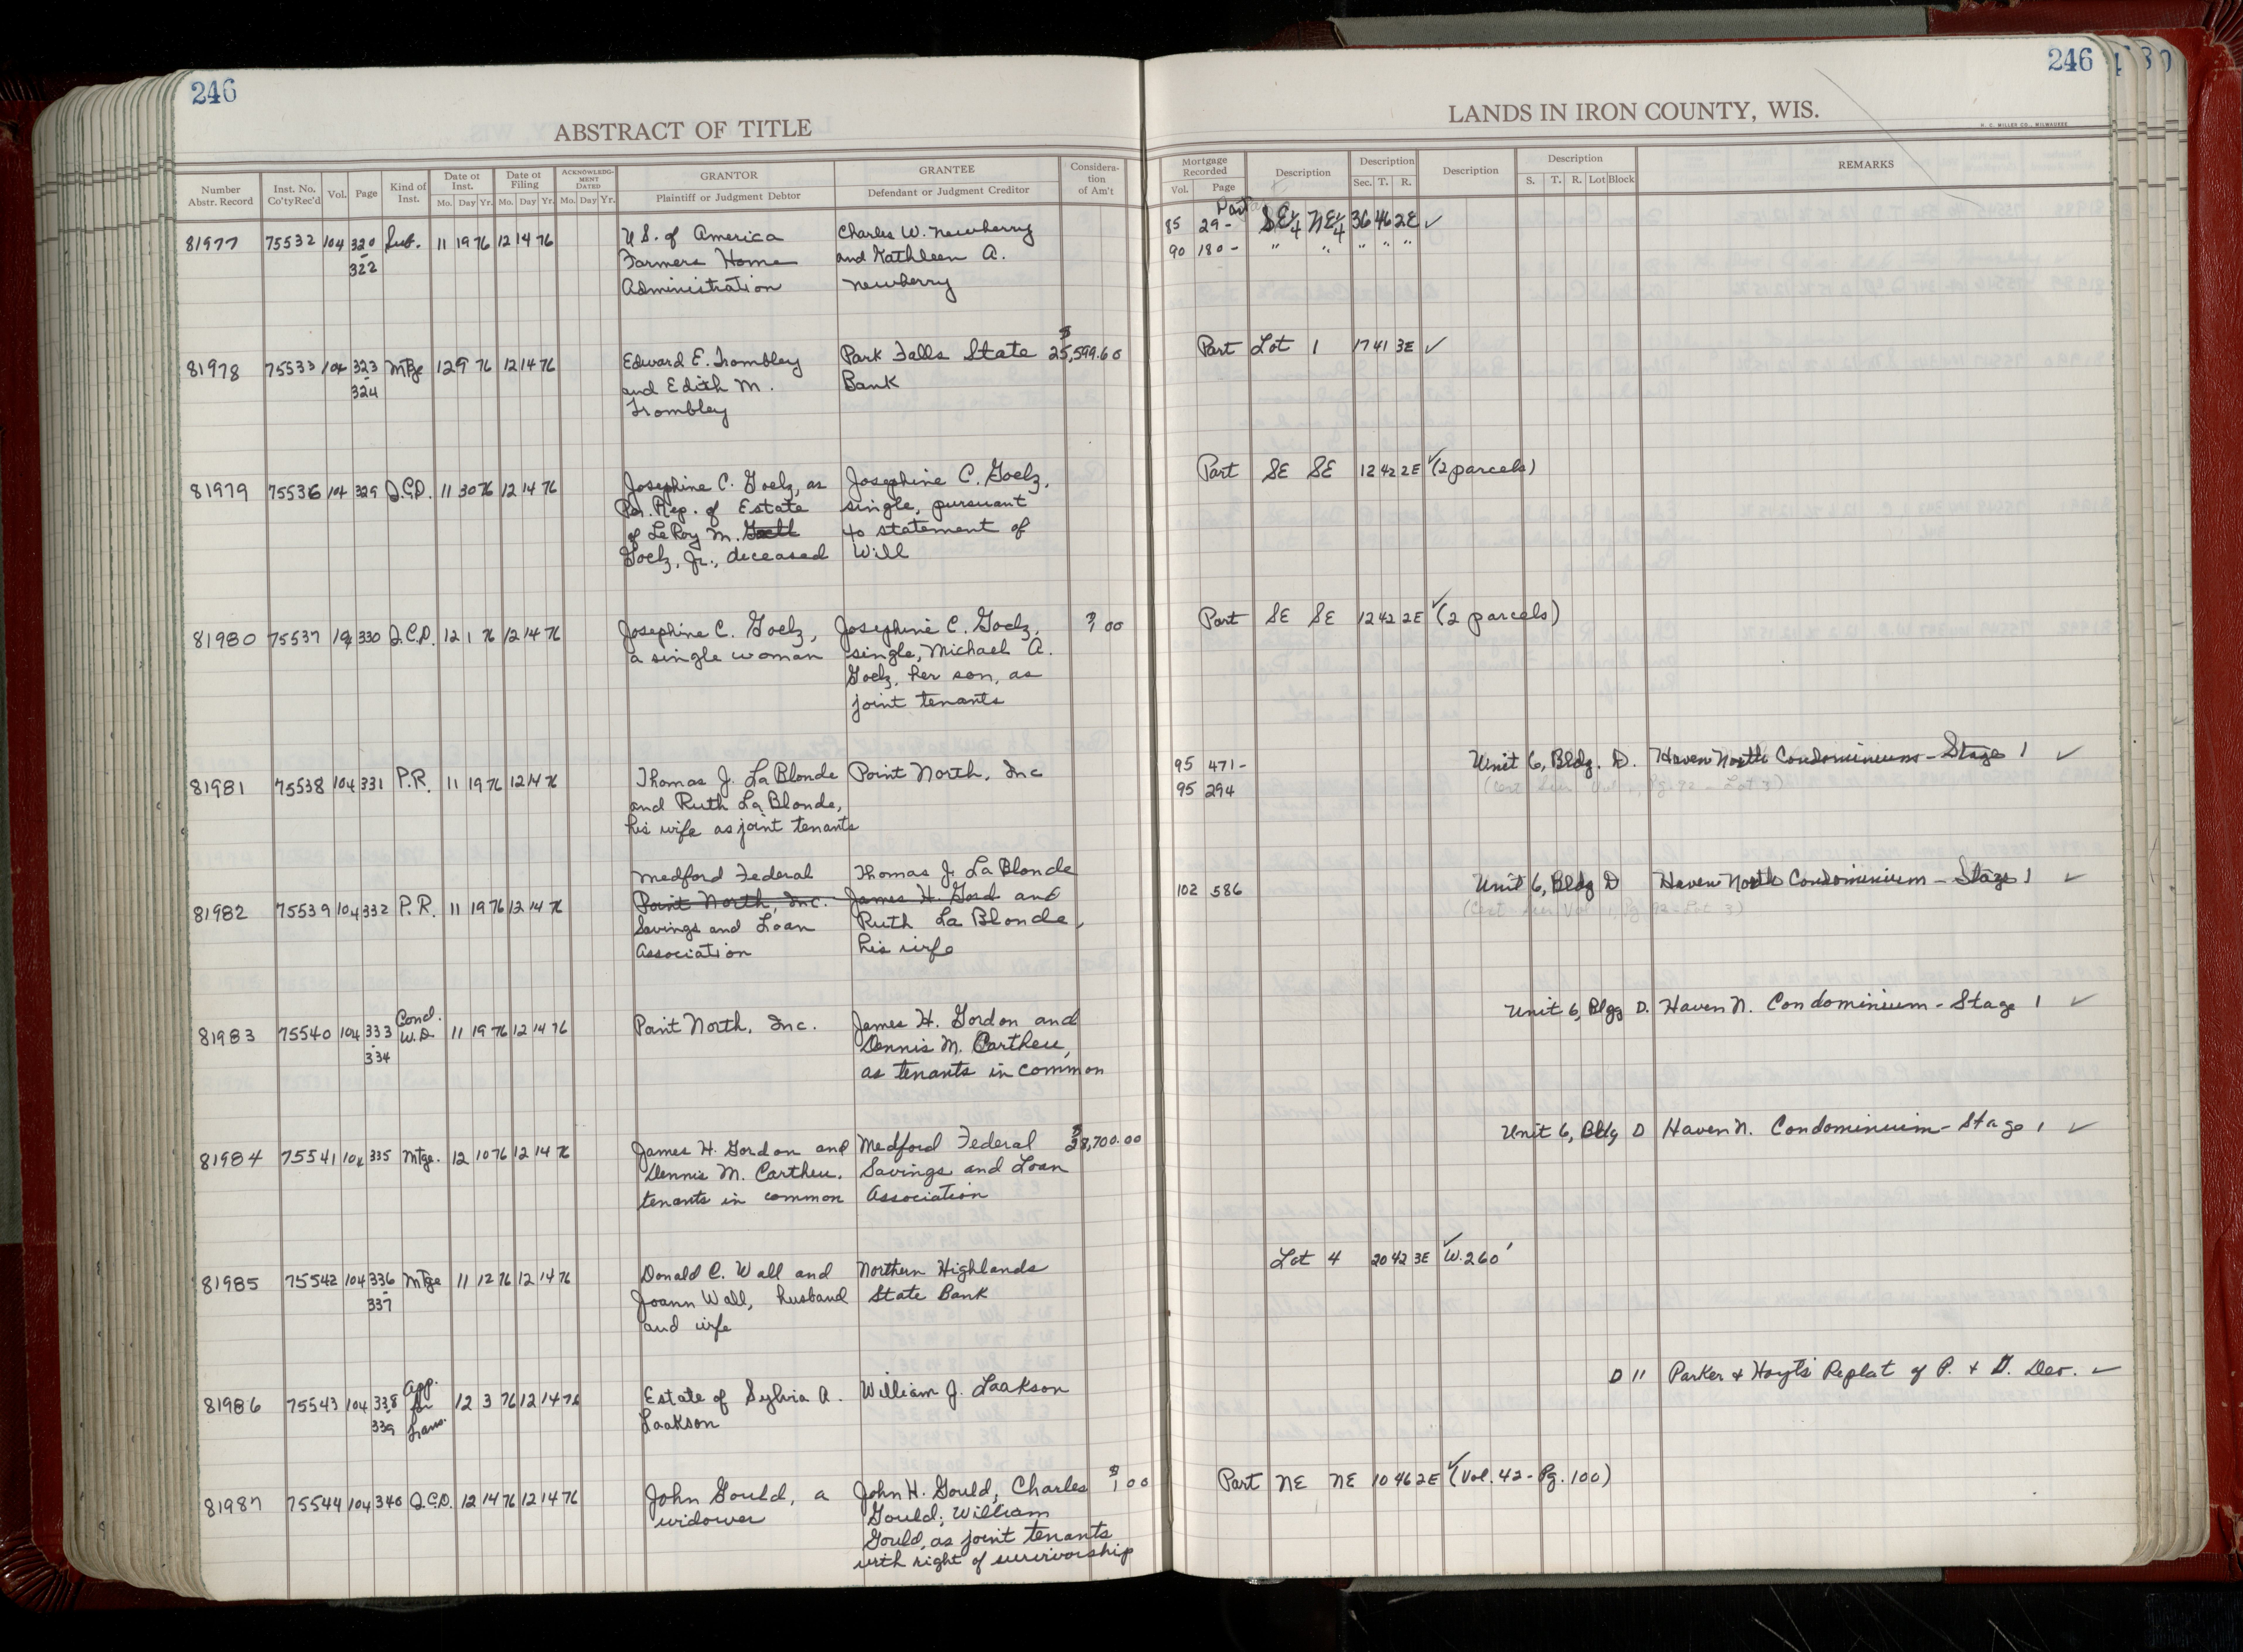 246
ABSTRACT OF TITLE
Number Abstr. Record
Inst. No. Co'ty Rec'd
Vol.
Page
Kind of Inst.
Date of Inst.
Mo. Day Yr.
Date of Filing
Mo. Day Yr.
ACKNOWLEDGMENT DATED
Mo. Day Yr.
GRANTOR
Plaintiff or Judgment Debtor
GRANTEE
Defendant or Judgment Creditor
Consideration of Am't
246
LANDS IN IRON COUNTY, WIS.
H. C. MILLER CO., MILWAUKEE
Mortgage Recorded
Vol. Page
Description
Description
Sec. T. R.
Description
Description
S. T. R. Lot Block
REMARKS
81977 75532 104 320 11 19 76 12 14 76 U.S. of America Charles W. Newberry 85 29- Part SE¼ NE¼ 36 46 2E ✓
- 322 Farmers Home and Kathleen A. 90 180- " " " " "
Administration Newberry
81978 75533 104 323 Mtge 12 9 76 12 14 76 Edward E. Trombley Park Falls State $25,599.60 Part Lot 1 17 41 3E ✓
- 324 and Edith M. Bank
Trombley
81979 75536 104 329 Q.C.D. 11 30 76 12 14 76 Josephine C. Goelz, as Josephine C. Goelz, Part SE SE 12 42 2E ✓ (2 parcels)
Per. Rep. of Estate single, pursuant
of LeRoy M. to statement of
Goelz, Jr., deceased Will
81980 75537 104 330 Q.C.D. 12 1 76 12 14 76 Josephine C. Goelz, Josephine C. Goelz, $1.00 Part SE SE 12 42 2E ✓ (2 parcels)
a single woman single, Michael A.
Goelz, her son, as
joint tenants
81981 75538 104 331 P.R. 11 19 76 12 14 76 Thomas J. LaBlonde Point North, Inc 95 471- Unit 6, Bldg. D. Haven North Condominiums - Stage 1 ✓
and Ruth LaBlonde, 95 294 (Cert Sur Vol 1, Pg. 92 - Lot 3)
his wife as joint tenants
Medford Federal Thomas J. LaBlonde
81982 75539 104 332 P.R. 11 19 76 12 14 76 Point North, Inc. James H. Gord and 102 586 Unit 6, Bldg D Haven North Condominium - Stage 1 ✓
Savings and Loan Ruth LaBlonde, (Cert Sur Vol 1, Pg 92 - Lot 3)
Association his wife
81983 75540 104 333 Cond. W.D. 11 19 76 12 14 76 Point North, Inc. James H. Gordon and Unit 6, Bldg D. Haven N. Condominium - Stage 1 ✓
- 334 Dennis M. Cartheu,
as tenants in common
81984 75541 104 335 Mtge. 12 10 76 12 14 76 James H. Gordon and Medford Federal $28,700.00 Unit 6, Bldg D Haven N. Condominium - Stage 1 ✓
Dennis M. Cartheu, Savings and Loan
tenants in common Association
81985 75542 104 336 Mtge 11 12 76 12 14 76 Donald C. Wall and Northern Highlands Lot 4 20 42 3E ✓ W. 260'
- 337 Joann Wall, husband State Bank
and wife
81986 75543 104 338 App. for Trans. 12 3 76 12 14 76 Estate of Sylvia A. William J. Laakson D 11 Parker & Hoyt's Replat of P. & D. Dev. ✓
- 339 Laakson
81987 75544 104 340 Q.C.D. 12 14 76 12 14 76 John Gould, a John H. Gould, Charles $1.00 Part NE NE 10 46 2E ✓ (Vol. 42 - Pg. 100)
widower Gould, William
Gould, as joint tenants
with right of survivorship